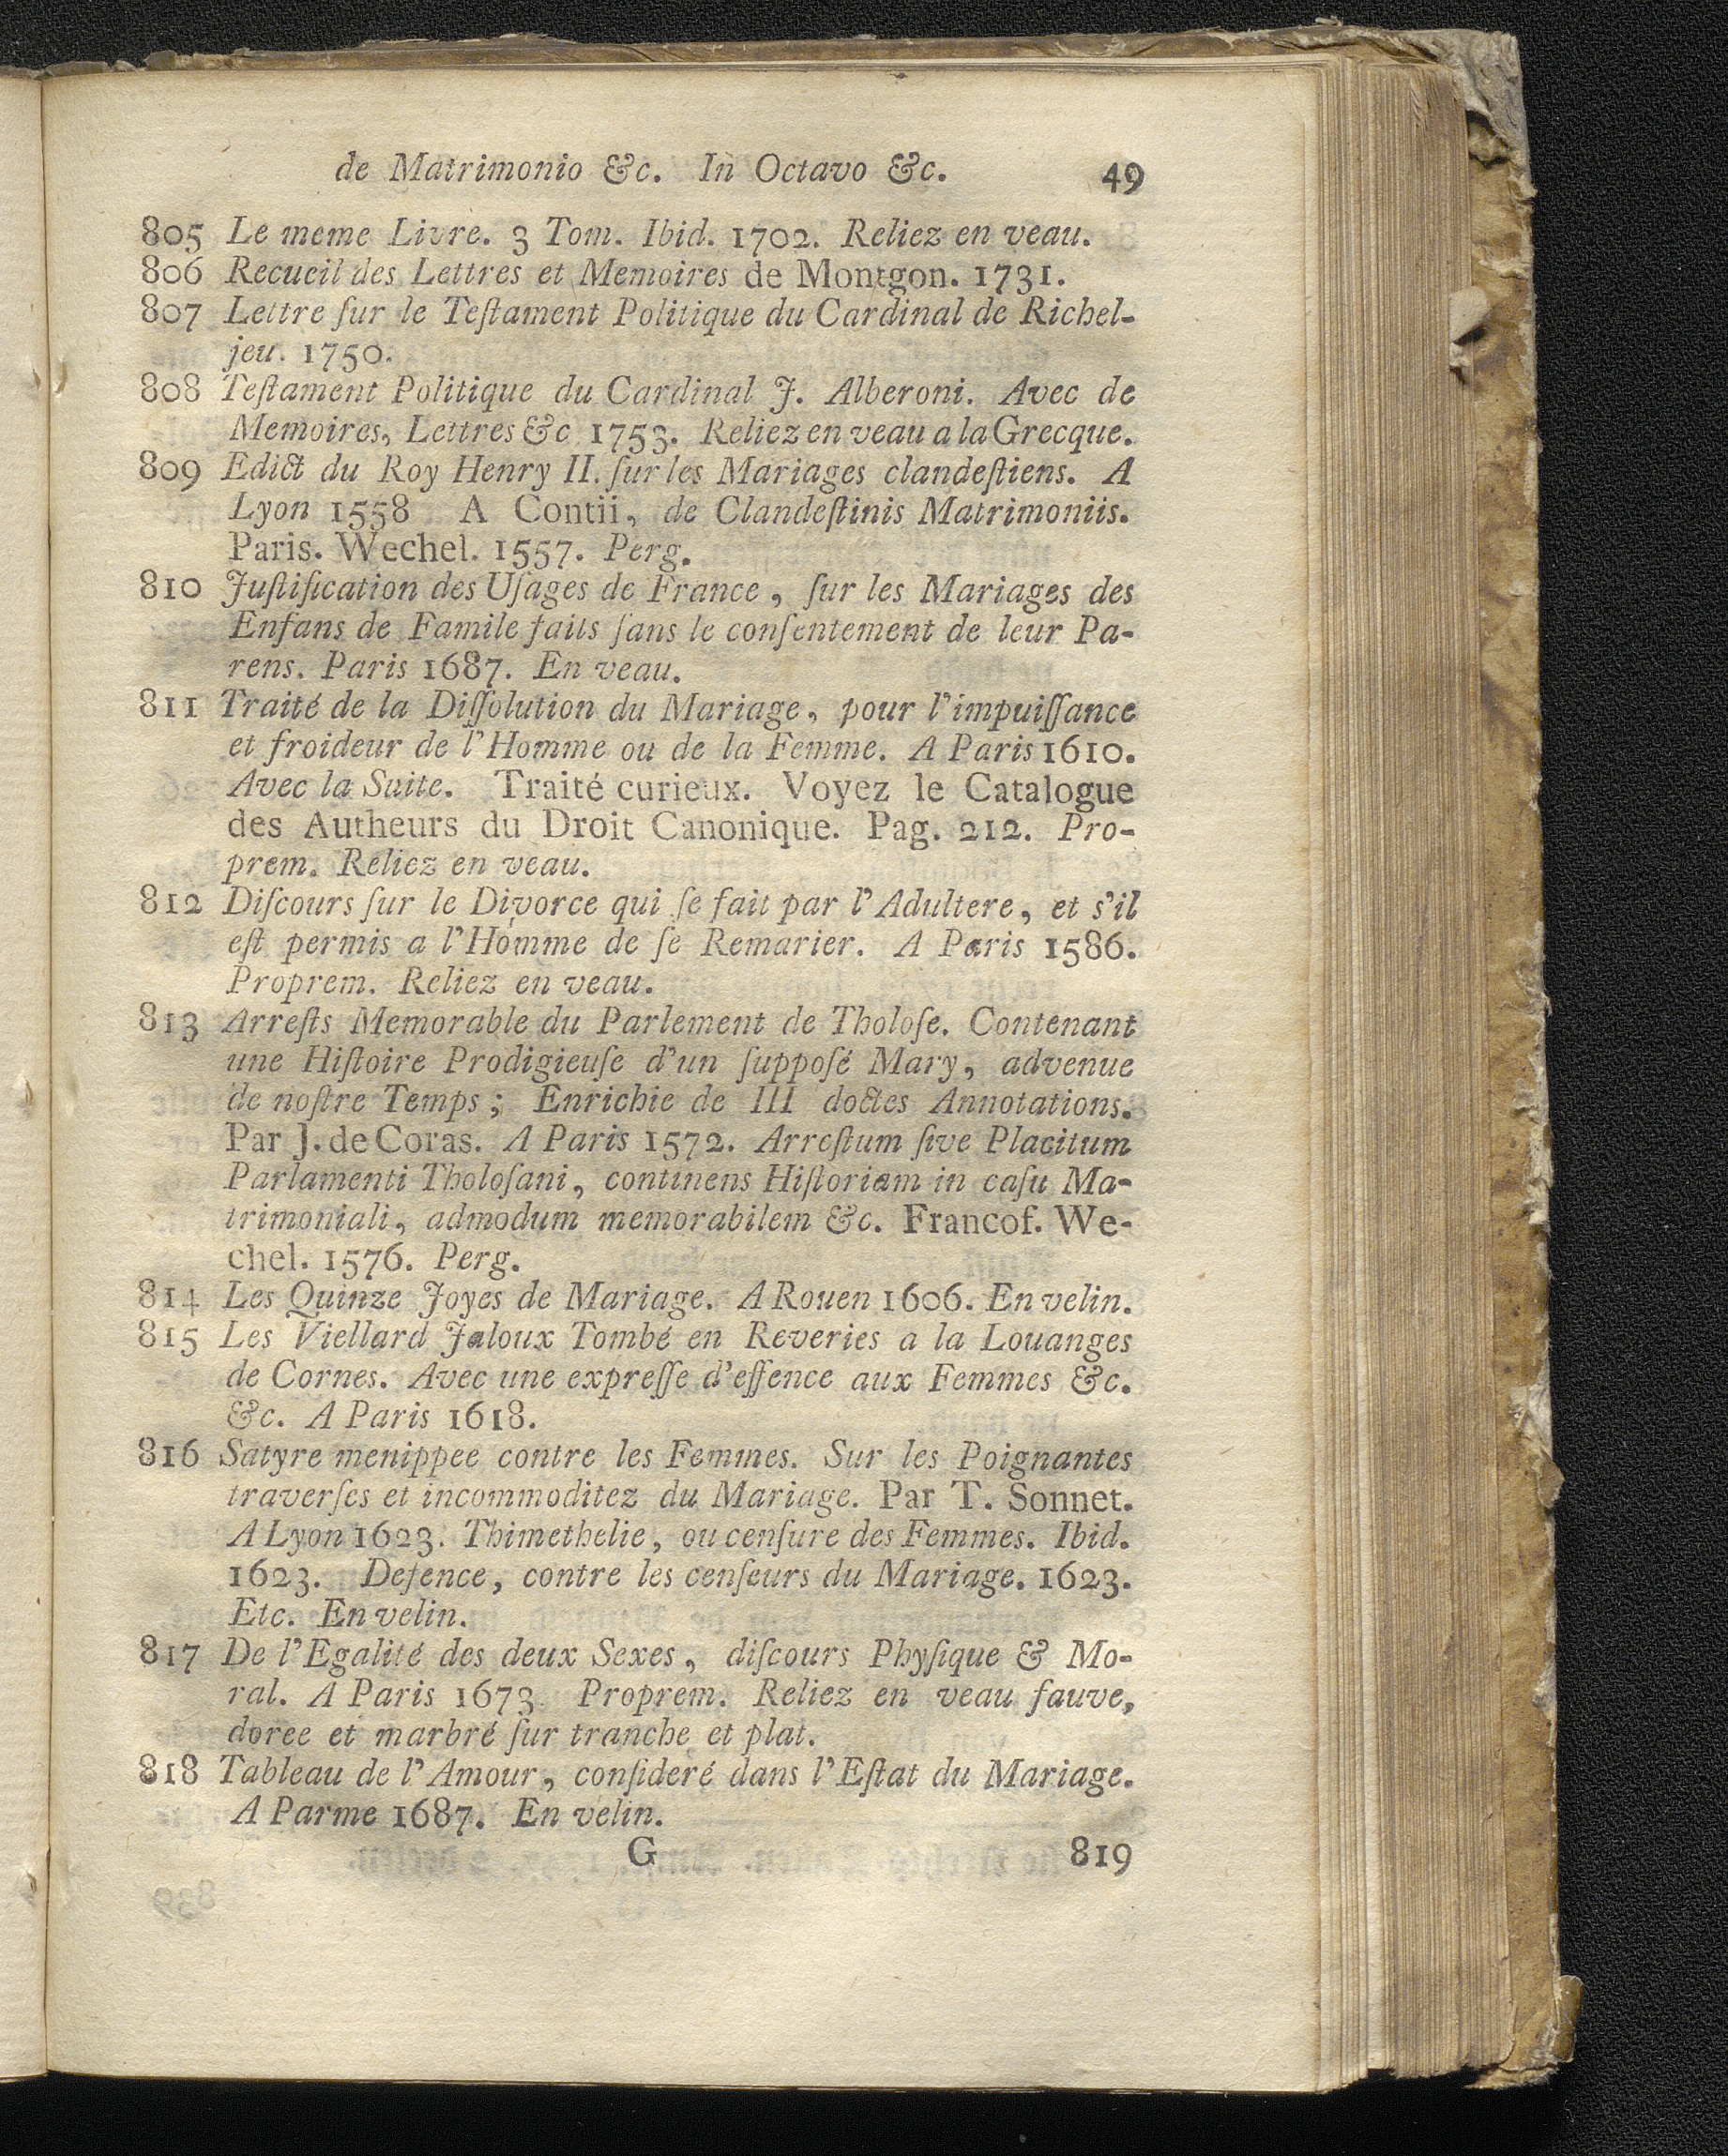 de Matrimonio &c. In Octavo &c. 49
805 Le meme Livre. 3 Tom. Ibid. 1702. Reliez en veau.
806 Recueil des Lettres et Memoires de Montgon. 1731.
807 Lettre ſur le Teſtament Politique du Cardinal de Richel-
jeu. 1750.
808 Teſtament Politique du Cardinal J. Alberoni. Avec de
Memoires, Lettres &c 1753. Reliez en veau a la Grecque.
809 Edict du Roy Henry II. ſur les Mariages clandeſtiens. A
Lyon 1558 A Contii, de Clandeſtinis Matrimoniis.
Paris. Wechel. 1557. Perg.
810 Juſtification des Uſages de France, ſur les Mariages des
Enfans de Famile faits ſans le conſentement de leur Pa-
rens. Paris 1687. En veau.
811 Traité de la Diſſolution du Mariage, pour l'impuiſſance
et froideur de l'Homme ou de la Femme. A Paris 1610.
Avec la Suite. Traité curieux. Voyez le Catalogue
des Autheurs du Droit Canonique. Pag. 212. Pro-
prem. Reliez en veau.
812 Diſcours ſur le Divorce qui ſe fait par l'Adultere, et s'il
eſt permis a l'Homme de ſe Remarier. A Paris 1586.
Proprem. Reliez en veau.
813 Arreſts Memorable du Parlement de Tholoſe. Contenant
une Hiſtoire Prodigieuſe d'un ſuppoſé Mary, advenue
de noſtre Temps; Enrichie de III doctes Annotations.
Par J. de Coras. A Paris 1572. Arreſtum ſive Placitum
Parlamenti Tholoſani, continens Hiſtoriam in caſu Ma-
trimoniali, admodum memorabilem &c. Francof. We-
chel. 1576. Perg.
814 Les Quinze Joyes de Mariage. A Rouen 1606. En velin.
815 Les Viellard Jaloux Tombé en Reveries a la Louanges
de Cornes. Avec une expreſſe d'eſſence aux Femmes &c.
&c. A Paris 1618.
816 Satyre menippee contre les Femmes. Sur les Poignantes
traverſes et incommoditez du Mariage. Par T. Sonnet.
A Lyon 1623. Thimethelie, ou cenſure des Femmes. Ibid.
1623. Defence, contre les cenſeurs du Mariage. 1623.
Etc. En velin.
817 De l'Egalité des deux Sexes, diſcours Phyſique & Mo-
ral. A Paris 1673. Proprem. Reliez en veau fauve,
doree et marbré ſur tranche et plat.
818 Tableau de l'Amour, conſideré dans l'Eſtat du Mariage.
A Parme 1687. En velin.
G 819